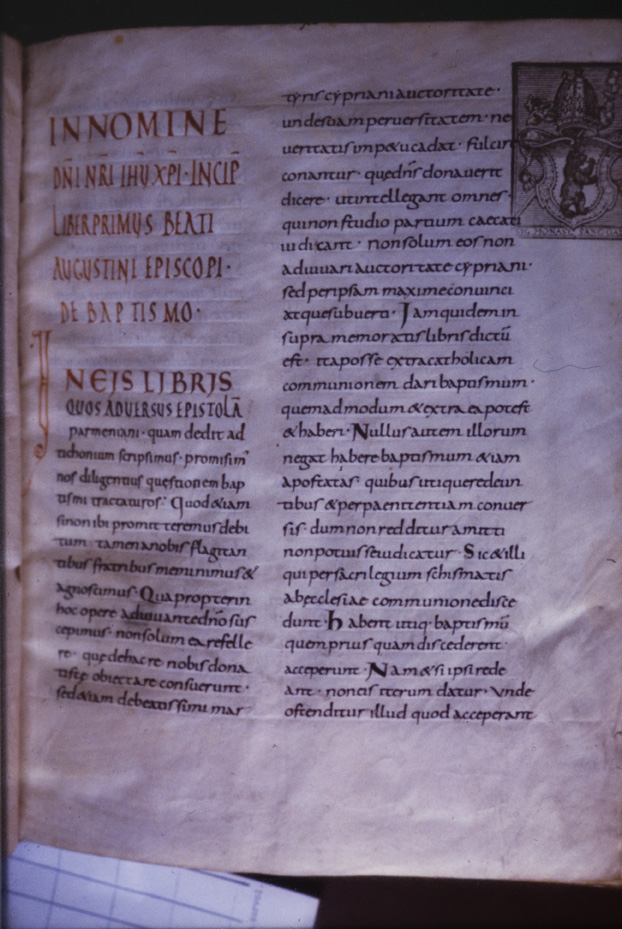 IN NOMINE
DN̄I NR̄I IHŪ XPI· INCIP̄
LIBER PRIMUS BEATI
AUGUSTINI EPISCOPI·
DE BAPTISMO·
IN EIS LIBRIS
QUOS ADVERSUS EPISTOLĀ
parmeniani· quam dedit ad
tichonium scripsimus· promisim'
nos diligentius questionem bap
tismi tractaturos· Quod &iam
sinon ibi promitteremus debi
tum· tamen anobis flagitan
tibus fratribus meminimus &
agnoscimus· Quapropter in
hoc opere adiuuante dn̄o sus
cepimus· non solum ea refelle
re· que de hac re nobis dona
tiste obiectare consuerunt·
sed &iam de beatissimi mar
tyris cypriani auctoritate·
unde suam peruersitatem· ne
ueritatis imp&u cadat· fulcire
conantur· que dn̄s donauerit
dicere· ut intellegant omnes·
qui non studio partium caecati
iudicant· non solum eos non
adiuuari auctoritate cypriani·
sed per ipsam maxime conuinci
atque subuerti· Iam quidem in
supra memoratis libris dictū
est· ita posse extra catholicam
communionem dari baptismum·
quemadmodum & extra ea potest
& haberi· Nullus autem illorum
negat habere baptismum &iam
apostatas· quibus utique redeun
tibus & per paenitentiam conuer
sis· dum non redditur amitti
non potuisse iudicatur· Sic & illi
qui per sacrilegium schismatis
ab ecclesiae communione disce
dunt· habent utiq· baptismū
quem prius quam discederent·
acceperunt· Nam & si ipsi rede
ant· non eis iterum datur· Unde
ostenditur illud quod acceperant